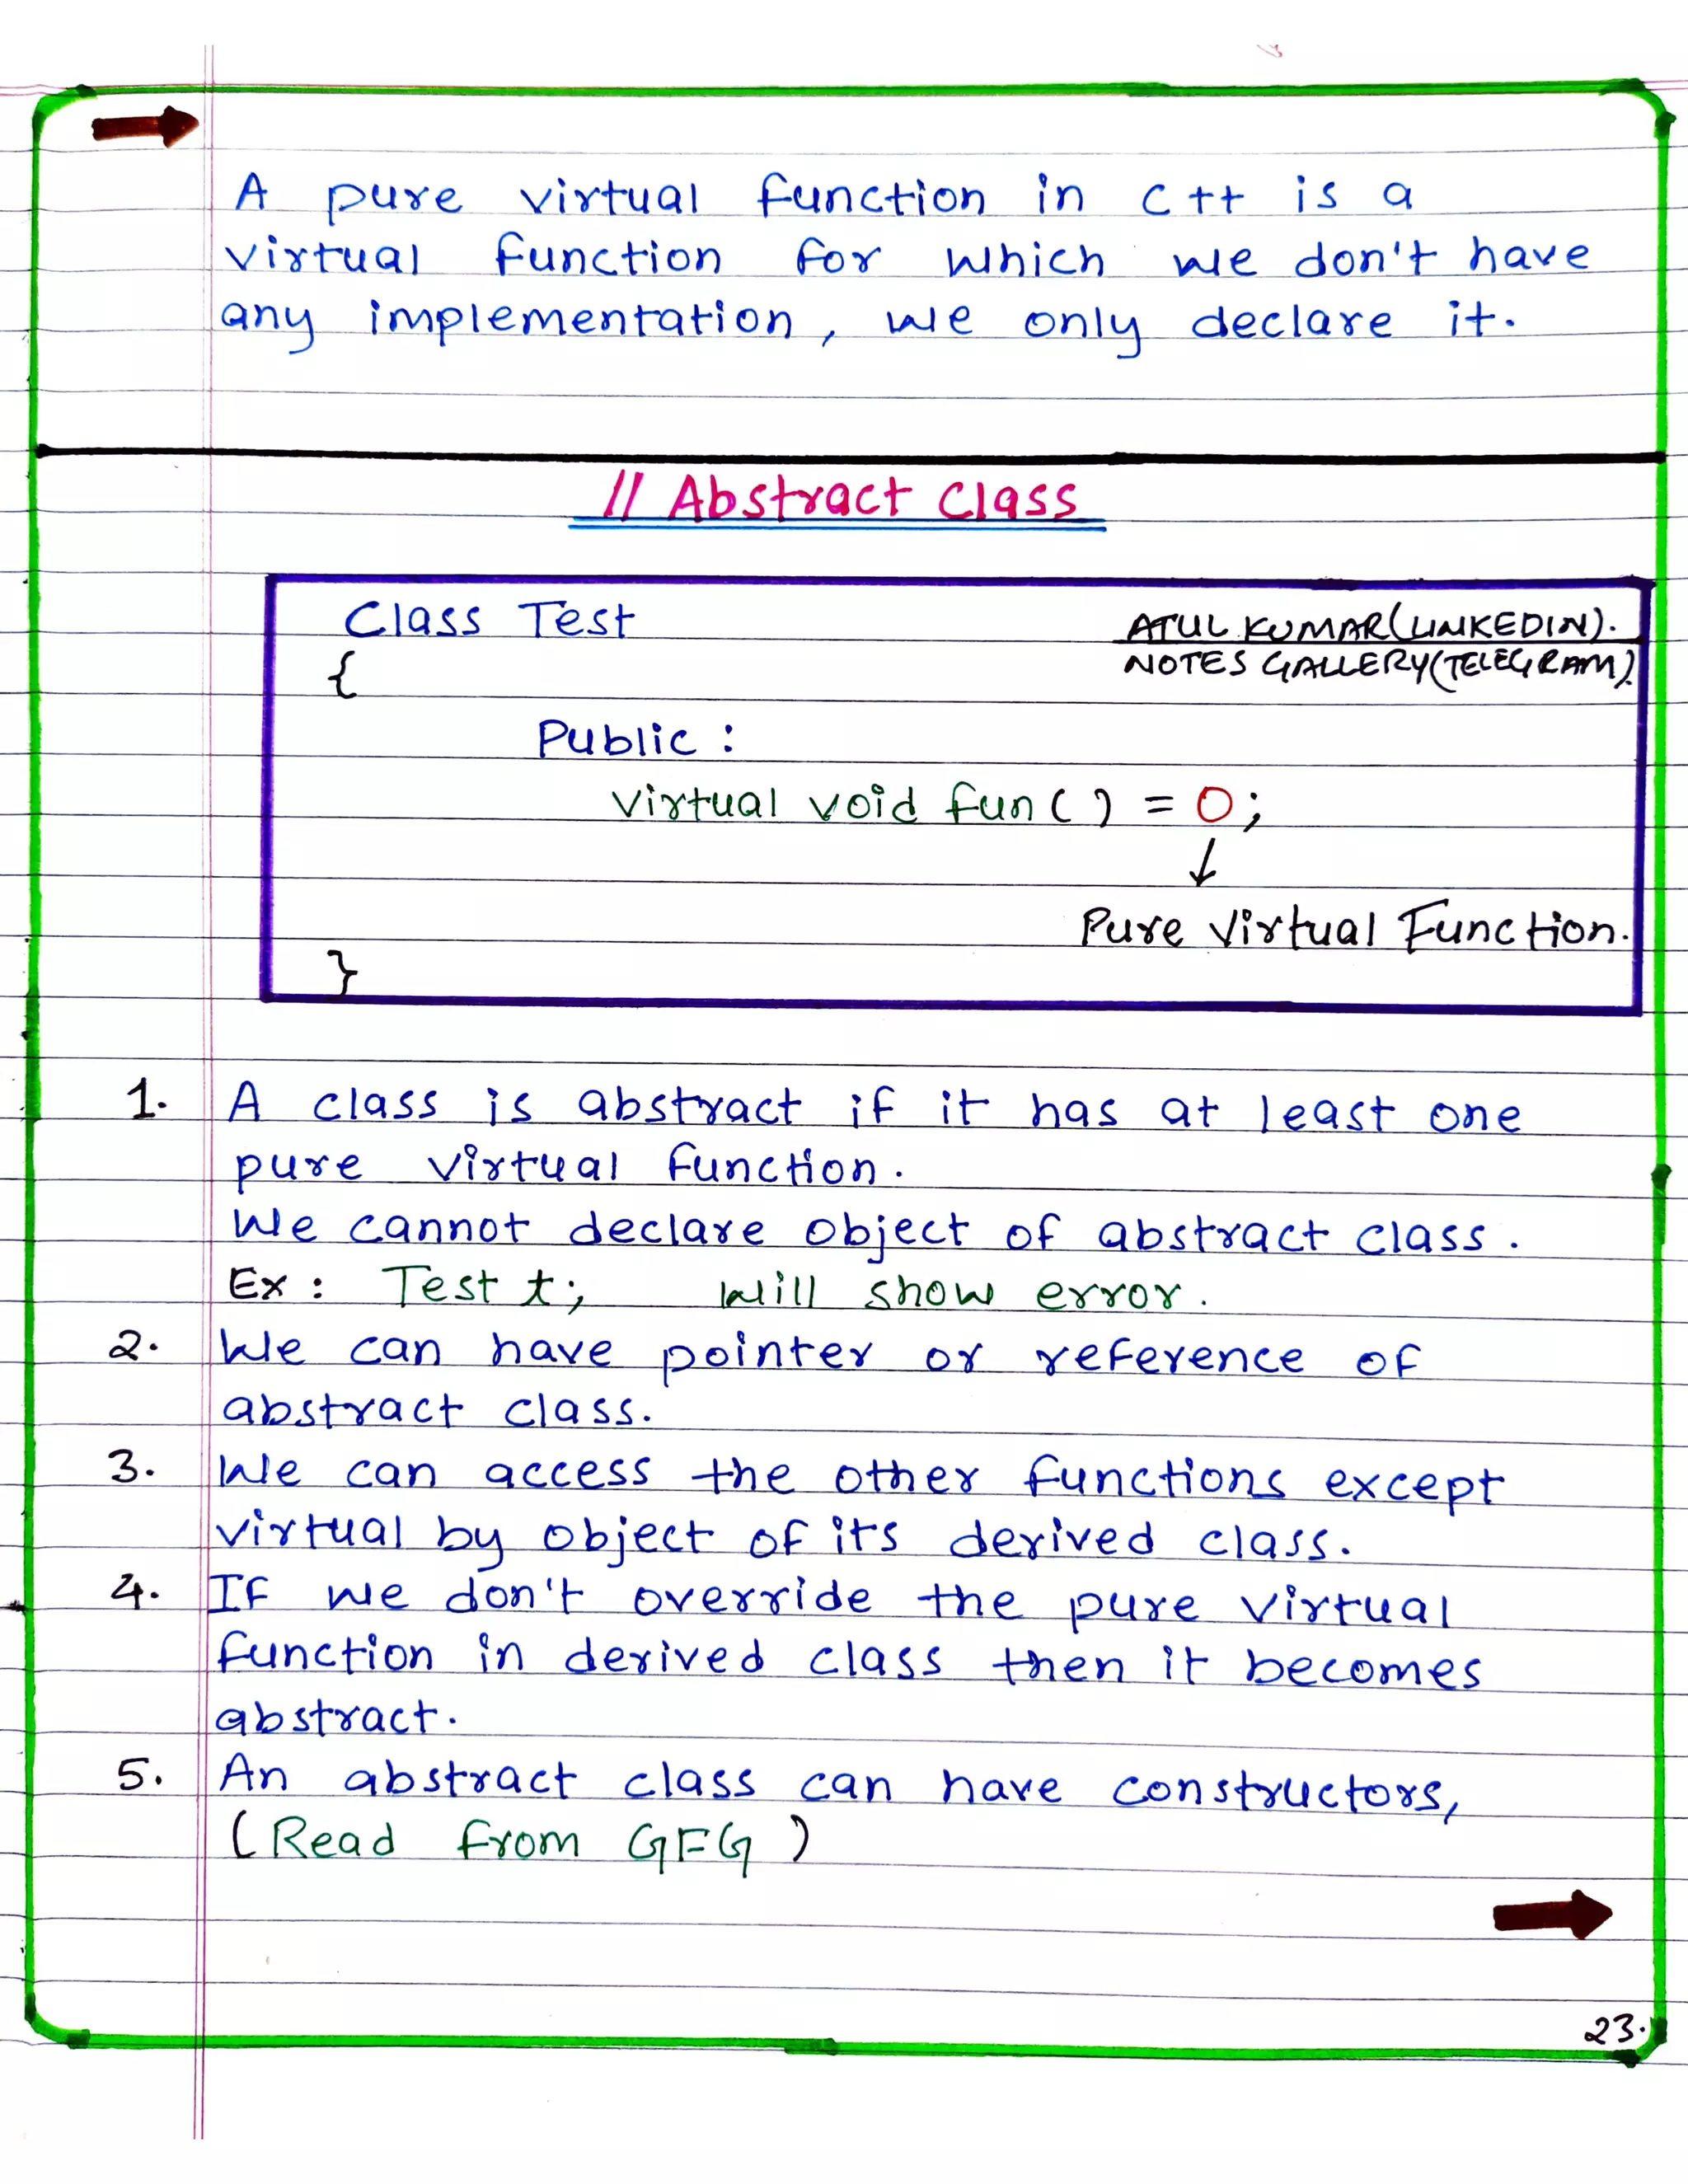 A pure virtual function in C++ is a
virtual function for which we don't have
any implementation, we only declare it.
// Abstract Class
Class Test
ATUL KUMAR(LINKEDIN).
{
NOTES GALLERY(TELEGRAM).
Public :
virtual void fun() = 0;
↓
Pure Virtual Function.
}
1. A class is abstract if it has at least one
pure virtual function.
We cannot declare object of abstract class.
Ex : Test t; will show error.
2. We can have pointer or reference of
abstract class.
3. We can access the other functions except
virtual by object of its derived class.
4. If we don't override the pure virtual
function in derived class then it becomes
abstract.
5. An abstract class can have constructors,
(Read from GFG)
23.